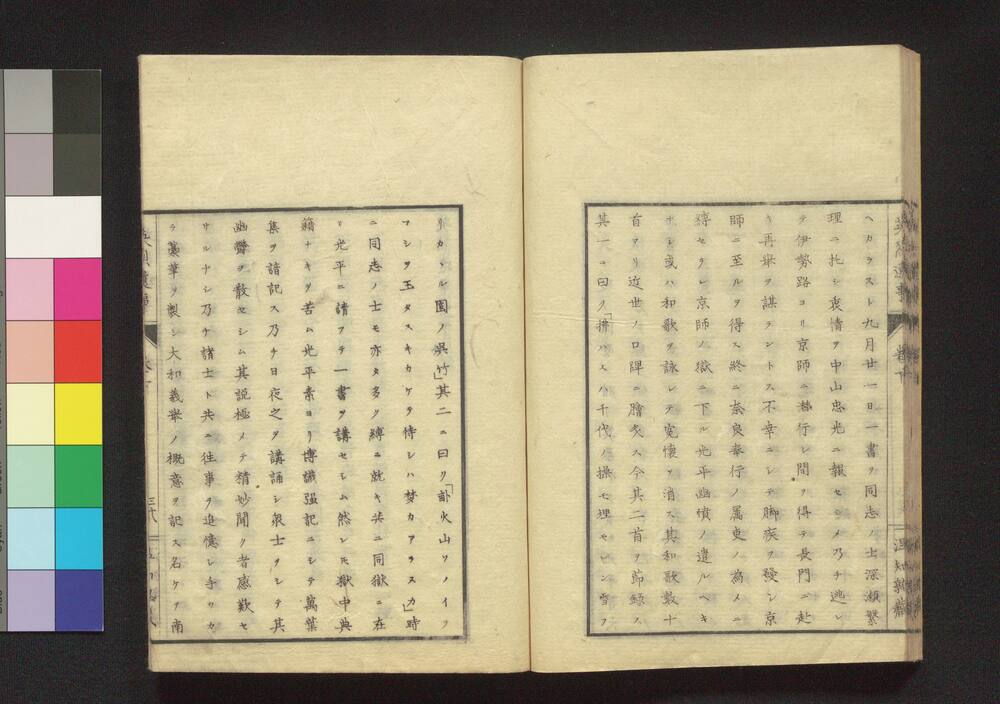 ヘカラスト九月廿一日一書ヲ同志ノ士深瀬繁
理ニ托シ衷情ヲ中山忠光ニ報セシメ乃チ逃レ
テ伊勢路ヨリ京師ニ潜行シ間ヲ得テ長門ニ赴
キ再挙ヲ謀ラントス不幸ニシテ脚疾ヲ發シ京
師ニ至ルヲ得ス終ニ奈良奉行ノ属吏ノ為メニ
縛セラレ京師ノ獄ニ下ル光平幽憤ノ遣ルヘキ
ナシ或ハ和歌ヲ詠シテ寃懐ヲ消ス其和歌數十
首アリ近世ノ口碑ニ膾炙ス今其二首ヲ節録ス
其一ニ曰ク「拂ハスハ千代ノ操モ埋モレン雪ノ
リカヽル園ノ呉竹」其二ニ曰ク「卦火山ソノイツ
マシヲ玉タスキカケテ侍シハ梦カアラスカ」時
ニ同志ノ士モ亦タ多ク縛ニ就キ共ニ同獄ニ在
リ光平ニ請フテ一書ヲ講セシム然レ𪜈獄中典
籍ナキヲ苦ム光平素ヨリ博識强記ニシテ萬葉
集ヲ諳記ス乃チ日夜之ヲ講誦シ衆士ヲシテ其
幽鬱ヲ散セシム其説極メテ精妙聞ク者感歎セ
サルナシ乃チ諸士ト共ニ往事ヲ追憶シ手ツカ
ラ藁華ヲ製シ大和義挙ノ概意ヲ記ス名ケテ南